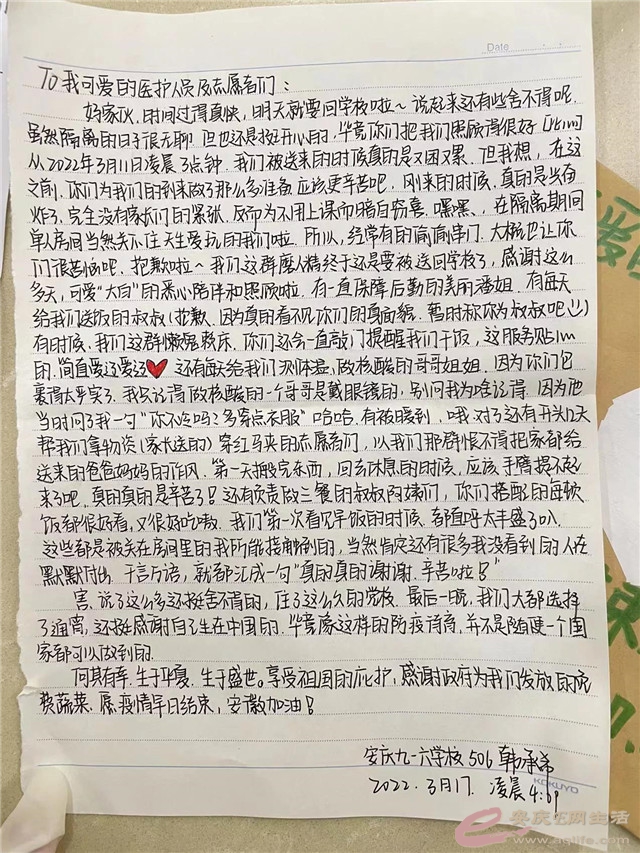 Date
To 我可爱的医护人员及志愿者们：
好家伙，时间过得真快，明天就要回学校啦～说起来还有些舍不得呢，
虽然隔离的日子很无聊 但也还是挺开心的，毕竟你们把我们照顾得很好
从2022年3月11日凌晨3点钟，我们被送来的时候真的是又困又累，但我想，在这
之前，你们为我们的到来做了那么多准备 应该更辛苦吧，刚来的时候，真的是当场
炸了，完全没有家长们的紧张，反而为不用上课而暗自窃喜，嘿嘿、在隔离期间
单人房间当然关不住天生爱玩的我们啦，所以，经常有的偷偷串门，大概也让你
们很苦恼吧，抱歉啦～我们这群磨人精终于还是要被送回学校了，感谢这么
多天，可爱“大白”的悉心陪伴和照顾啦，有一直保障后勤的美丽潘姐，有每天
给我们送饭的叔叔（抱歉，因为真的看不见你们的真面貌，暂时称你为叔叔吧
有时候，我们这群懒鬼赖床，你们还会一直敲门提醒我们干饭，这服务贴心
的，简直爱了爱了❤ 还有每天给我们测体温，做核酸的哥哥姐姐，因为你们包
裹得太严实了，我只记得做核酸的一个哥哥是戴眼镜的，别问我为啥记得，因为他
当时问了我一句“你不冷吗？多穿点衣服”哈哈，有被暖到，哦，对了还有开头几天
帮我们拿物资（家长送的）穿红马夹的志愿者们，以我们那群恨不得把家都给
送来的爸爸妈妈的作风，第一天搬完东西，回去休息的时候，应该手臂提不起
来了吧，真的真的是辛苦了！还有负责做三餐的叔叔阿姨们，你们搭配的每顿
饭都很好看，又很好吃嗷，我们第一次看见早饭的时候，都直呼太丰盛了叭，
这些都是被关在房间里的我所能接触到的，当然肯定还有很多我没看到的人在
默默付出，千言万语，就都汇成一句“真的真的谢谢，辛苦啦！”
害，说了这么多还挺舍不得的，住了这么久的党校，最后一晚，我们大都选择
了通宵，还挺感谢自己生在中国的，毕竟像这样的防疫待遇，并不是随便一个国
家都可以做到的，
何其有幸，生于华夏，生于盛世。享受祖国的庇护，感谢政府为我们发放的免
费蔬菜，愿疫情早日结束，安徽加油！
安庆九一六学校 506 韩承希
2022、3月17、凌晨4:09
KOKUYO
安庆E网生活
www.aqlife.com